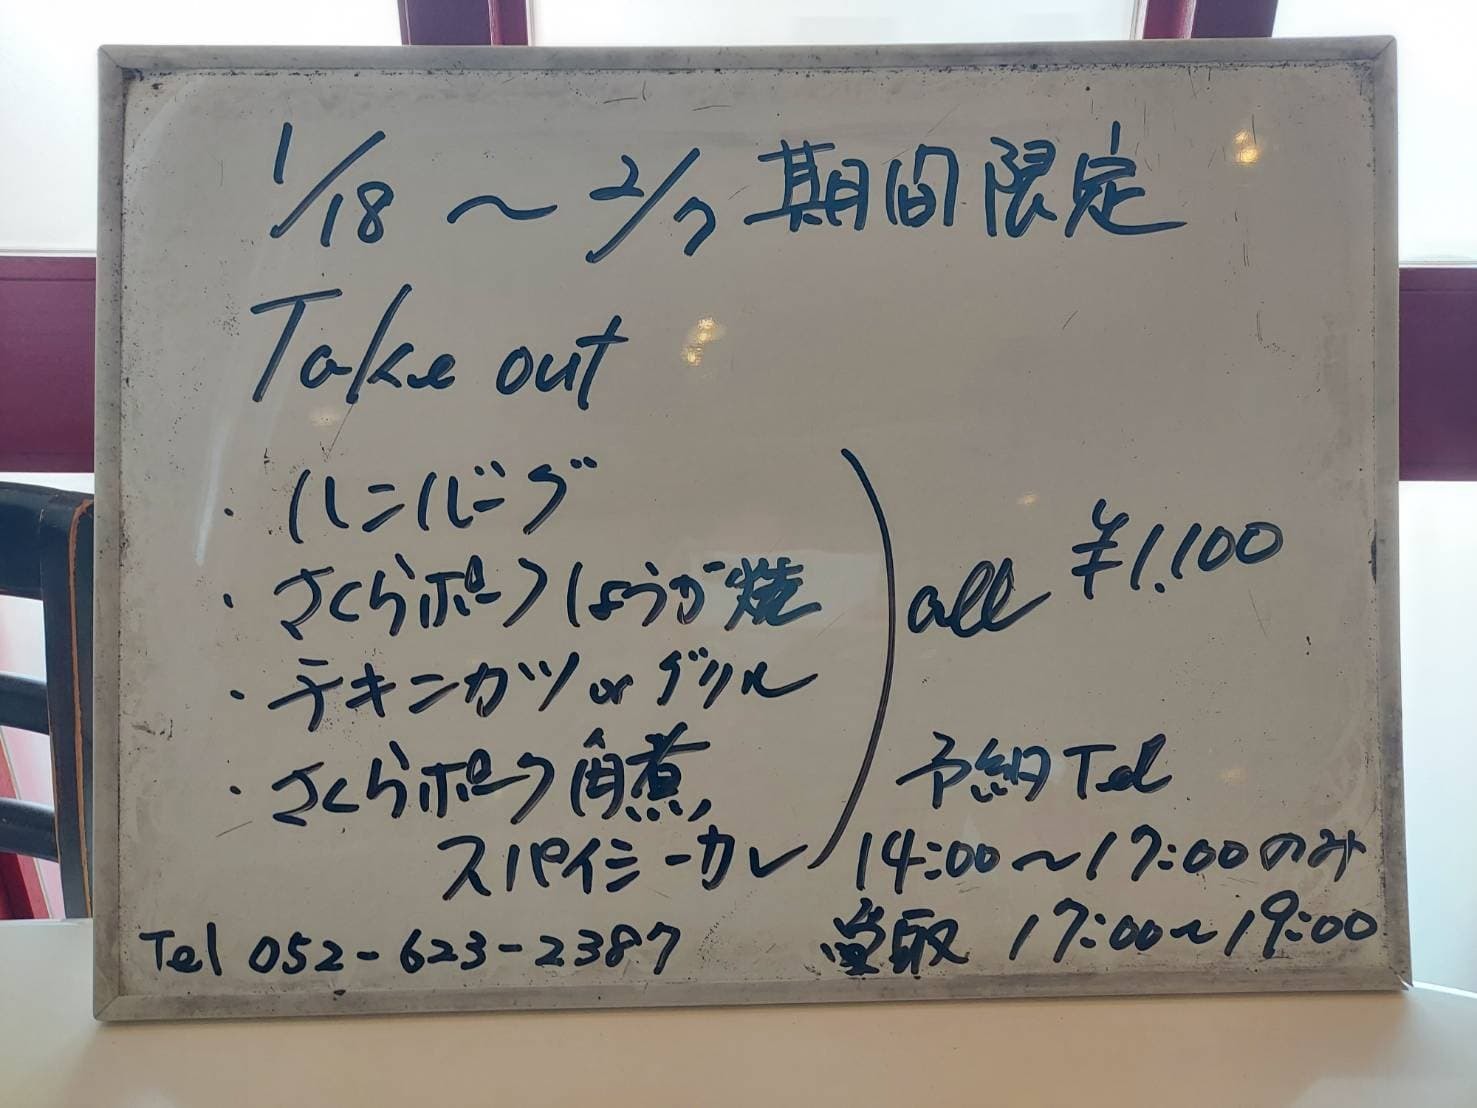 1/18 〜 2/7 期間限定
Take out
・ハンバーグ
・さくらポークしょうが焼
・チキンカツ or グリル
・さくらポーク角煮
スパイシーカレー
all ¥1.100
予約 Tel
14:00〜17:00のみ
受取 17:00〜19:00
Tel 052-623-2387